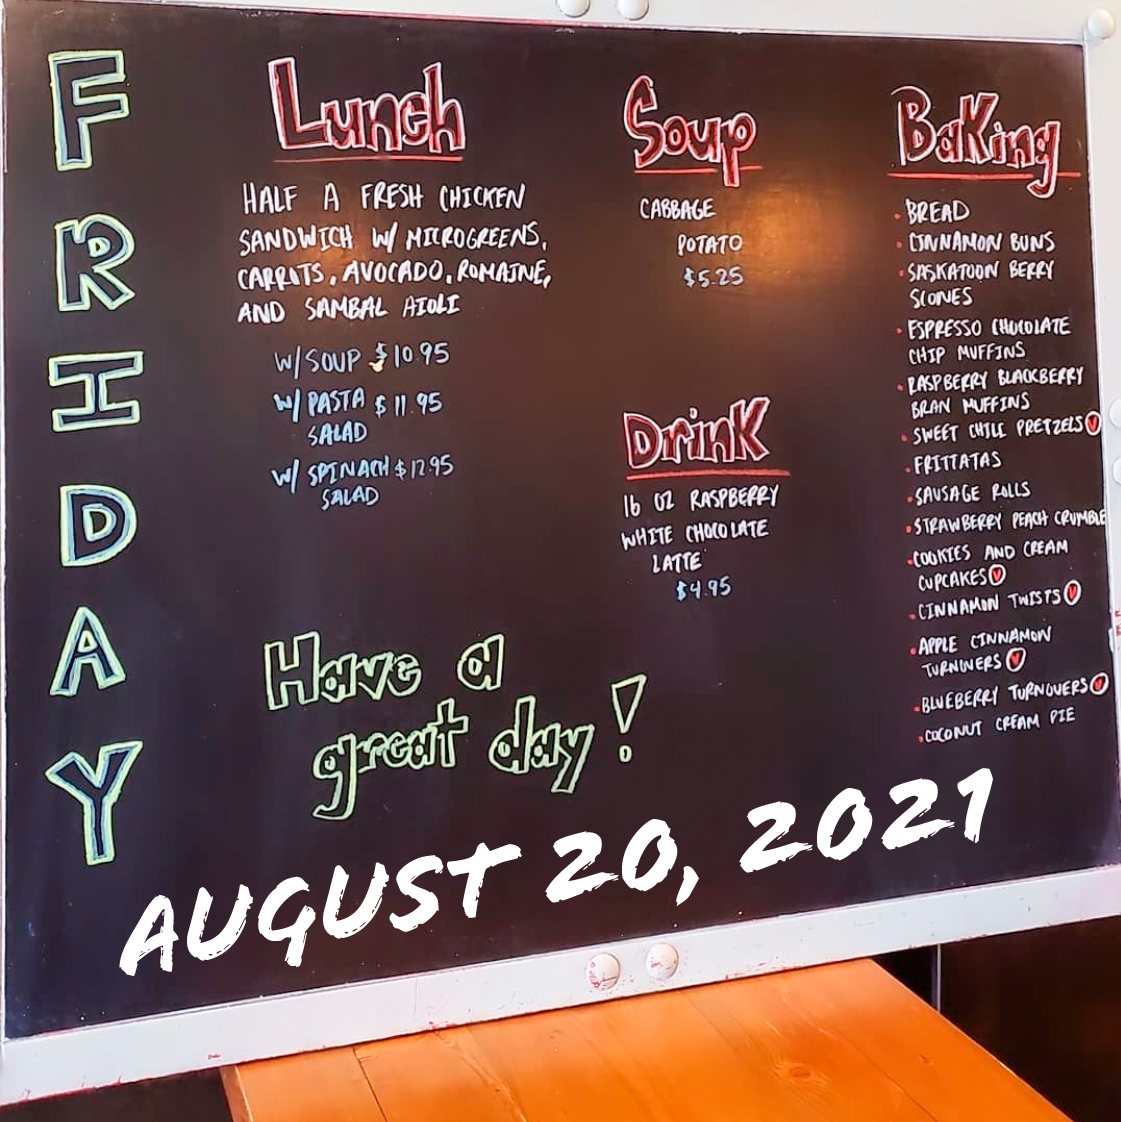 FRIDAY
Lunch
HALF A FRESH CHICKEN
SANDWICH W/ MICROGREENS,
CARROTS, AVOCADO, ROMAINE,
AND SAMBAL AIOLI
W/ SOUP $10.95
W/ PASTA $11.95
SALAD
W/ SPINACH $12.95
SALAD
Soup
CABBAGE
POTATO
$5.25
Drink
16 OZ RASPBERRY
WHITE CHOCOLATE
LATTE
$4.95
Baking
• BREAD
• CINNAMON BUNS
• SASKATOON BERRY
SCONES
• ESPRESSO CHOCOLATE
CHIP MUFFINS
• RASPBERRY BLACKBERRY
BRAN MUFFINS
• SWEET CHILI PRETZELS V
• FRITTATAS
• SAUSAGE ROLLS
• STRAWBERRY PEACH CRUMBLE
• COOKIES AND CREAM
CUPCAKES V
• CINNAMON TWISTS V
• APPLE CINNAMON
TURNOVERS V
• BLUEBERRY TURNOVERS V
• COCONUT CREAM PIE
Have a
great day!
AUGUST 20, 2021